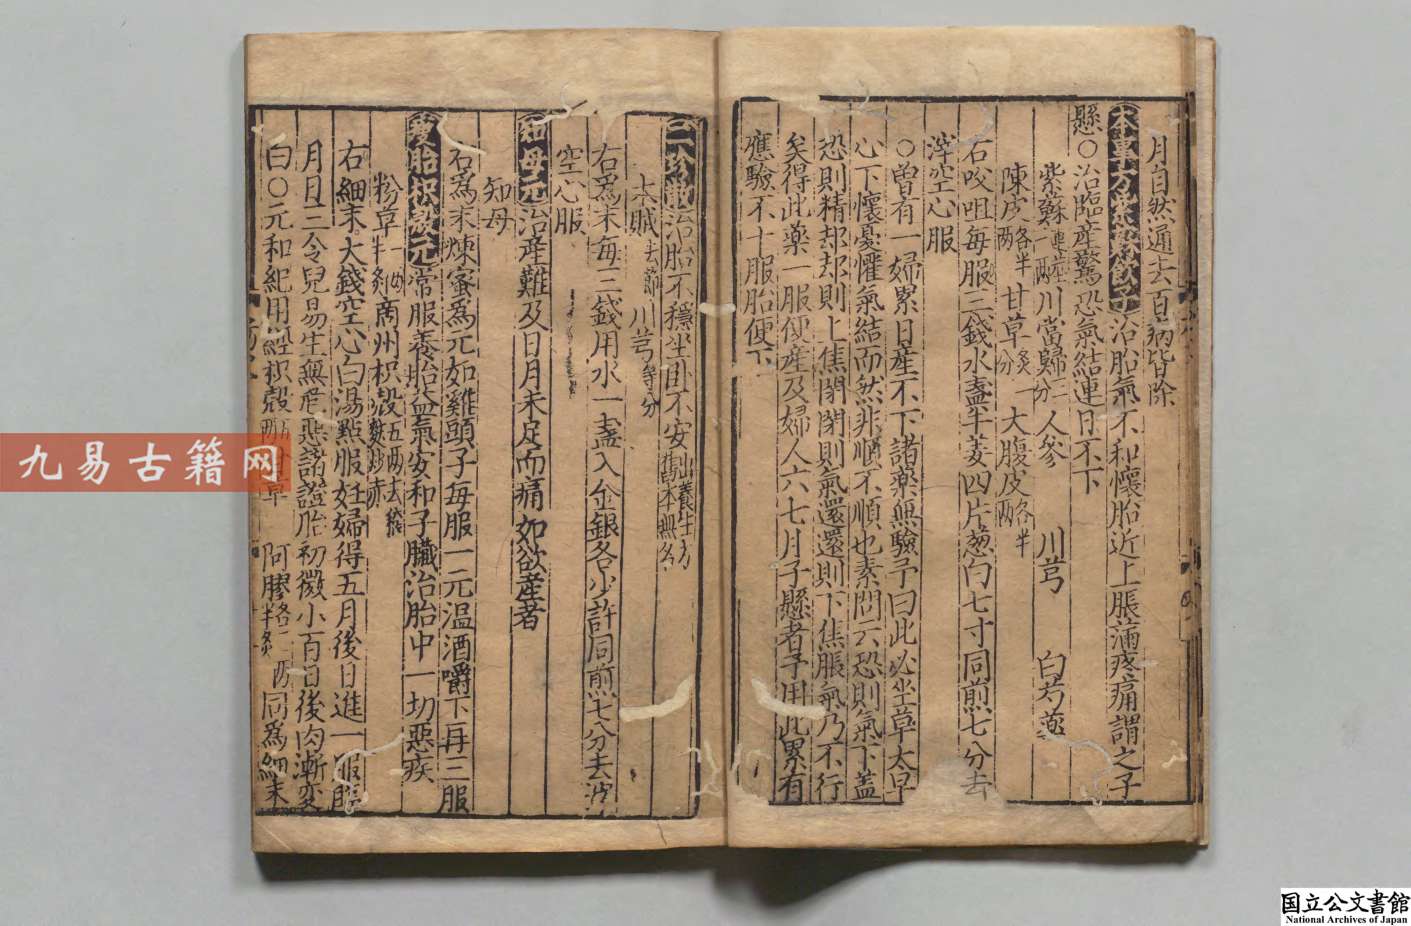 月自然通去百病皆除
本事方紫蘇飲子治胎氣不和懷胎近上脹滿疼痛謂之子
懸○治臨産驚恐氣結連日不下
紫蘇連莖一兩川當歸三分人參 川芎 白芍藥
陳皮各半兩甘草炙一分大腹皮各半兩
右㕮咀每服三錢水盞半姜四片葱白七寸同煎七分去
滓空心服
○曾有一婦累日産不下諸藥無驗予曰此必坐草太早
心下懷憂懼氣結而然非順不順也素問云恐則氣下蓋
恐則精却却則上焦閉閉則氣還還則下焦脹氣乃不行
矣得此藥一服便産及婦人六七月子懸者予用此累有
應驗不十服胎便下
二珍散治胎不穩坐卧不安
舊本無名
去節川芎等分
右爲末每三錢用水一盞入金銀各少許同煎七八分去滓
空心服
知母元治産難及日月未足而痛如欲産者
知母
右爲末煉蜜爲元如雞頭子每服一元温酒嚼下再三服
瘦胎枳殻元常服養胎益氣安和子臟治胎中一切惡疾
粉草一兩半炙商州枳殻五兩去穰麩炒赤
右細末大錢空心白湯點服妊婦得五月後日進一服
月日三令兒易生無他惡諸證胎初微小百日後肉漸變
白○元和紀用經枳殻 甘草 阿膠炙 同爲細末
九易古籍网
国立公文書館
National Archives of Japan